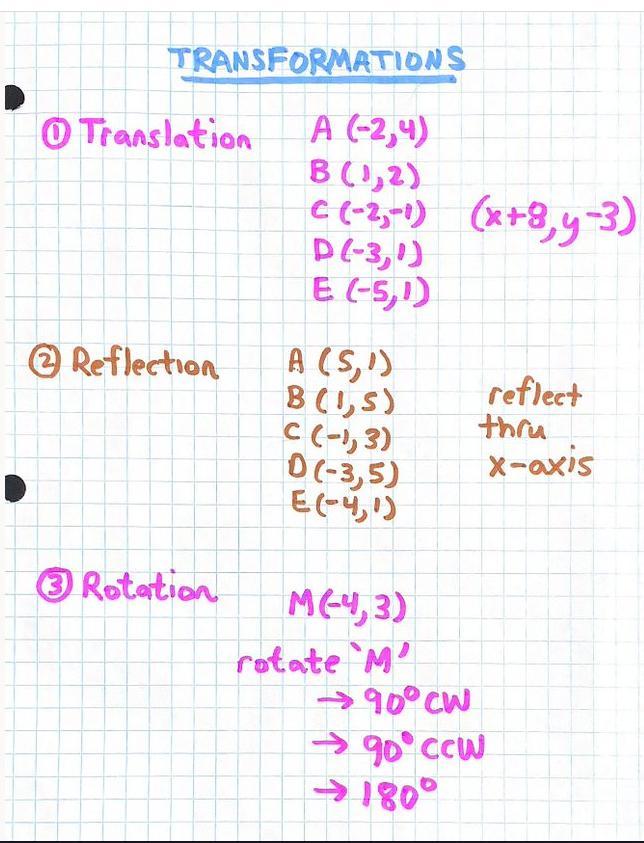 TRANSFORMATIONS
① Translation
A (-2,4)
B (1,2)
C (-2,-1)
D (-3,1)
E (-5,1)
(x+8,y-3)
② Reflection
A (5,1)
B (1,5)
C (-1,3)
D (-3,5)
E (-4,1)
reflect
thru
x-axis
③ Rotation
M(-4,3)
rotate 'M'
→ 90° CW
→ 90° CCW
→ 180°